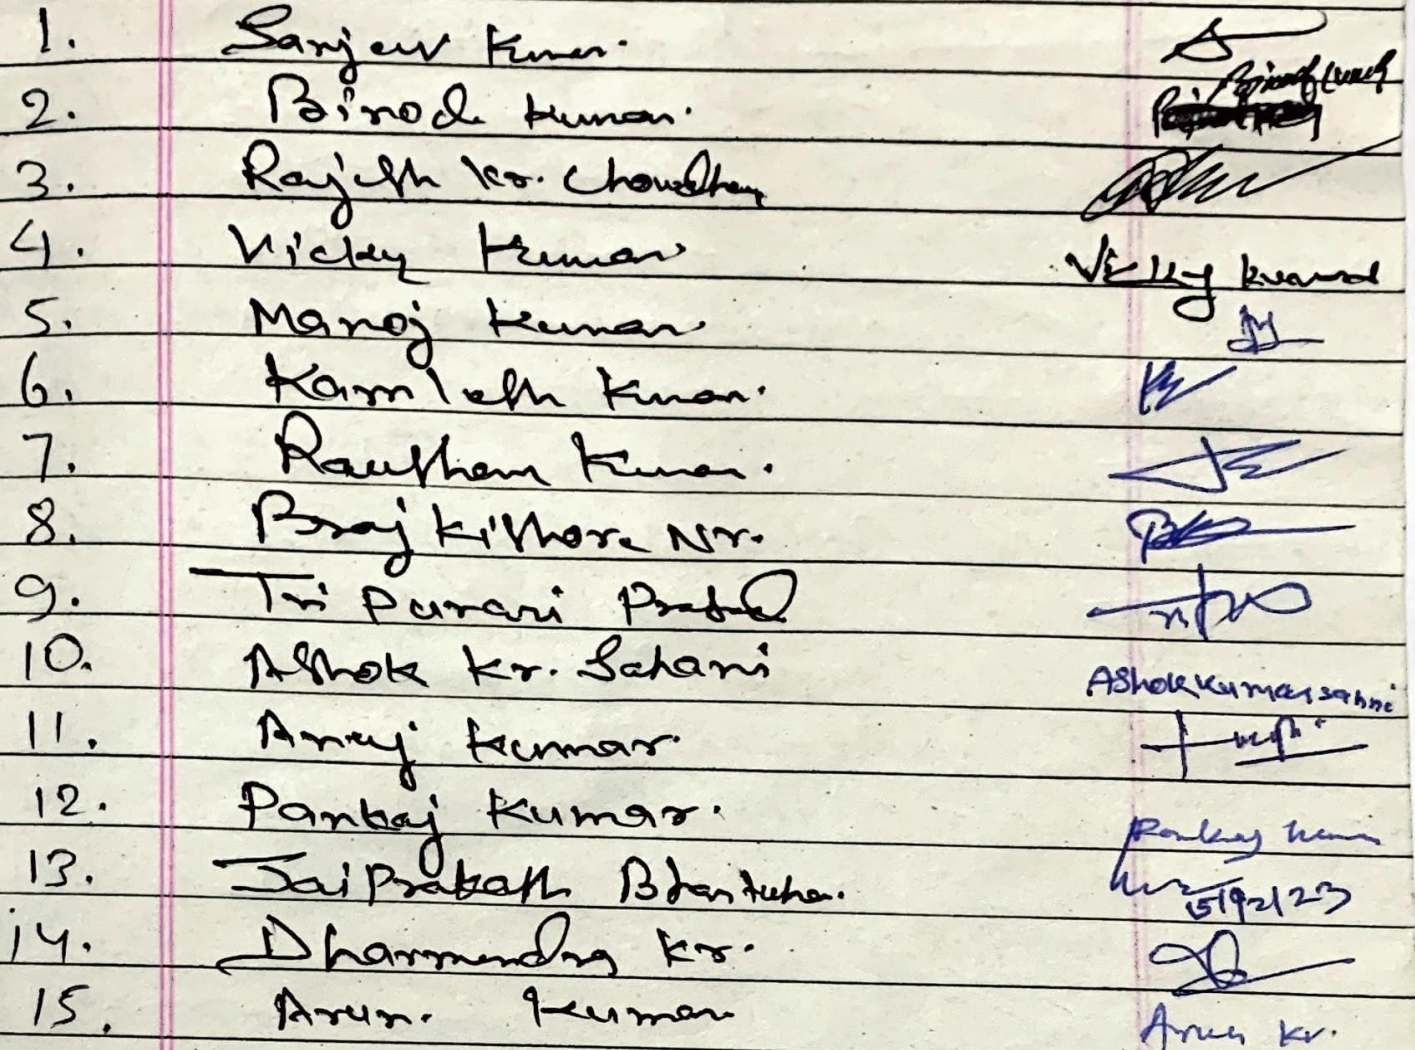 1. Sanjeev Kumar.
2. Binode Kumar.
3. Rajesh Kr. Choudhary
4. Vicky Kumar Vicky Kumar
5. Manoj Kumar
6. Kamlesh Kumar.
7. Raushan Kumar.
8. Braj Kishore Nr.
9. Tri Purari Prasad
10. Ashok Kr. Sahani AShok Kumar sahni
11. Anuj Kumar.
12. Pankaj Kumar. Pankaj Kumar
13. Jai Prakash
14. Dharmendra Kr.
15. Arun. Kumar Arun Kr.